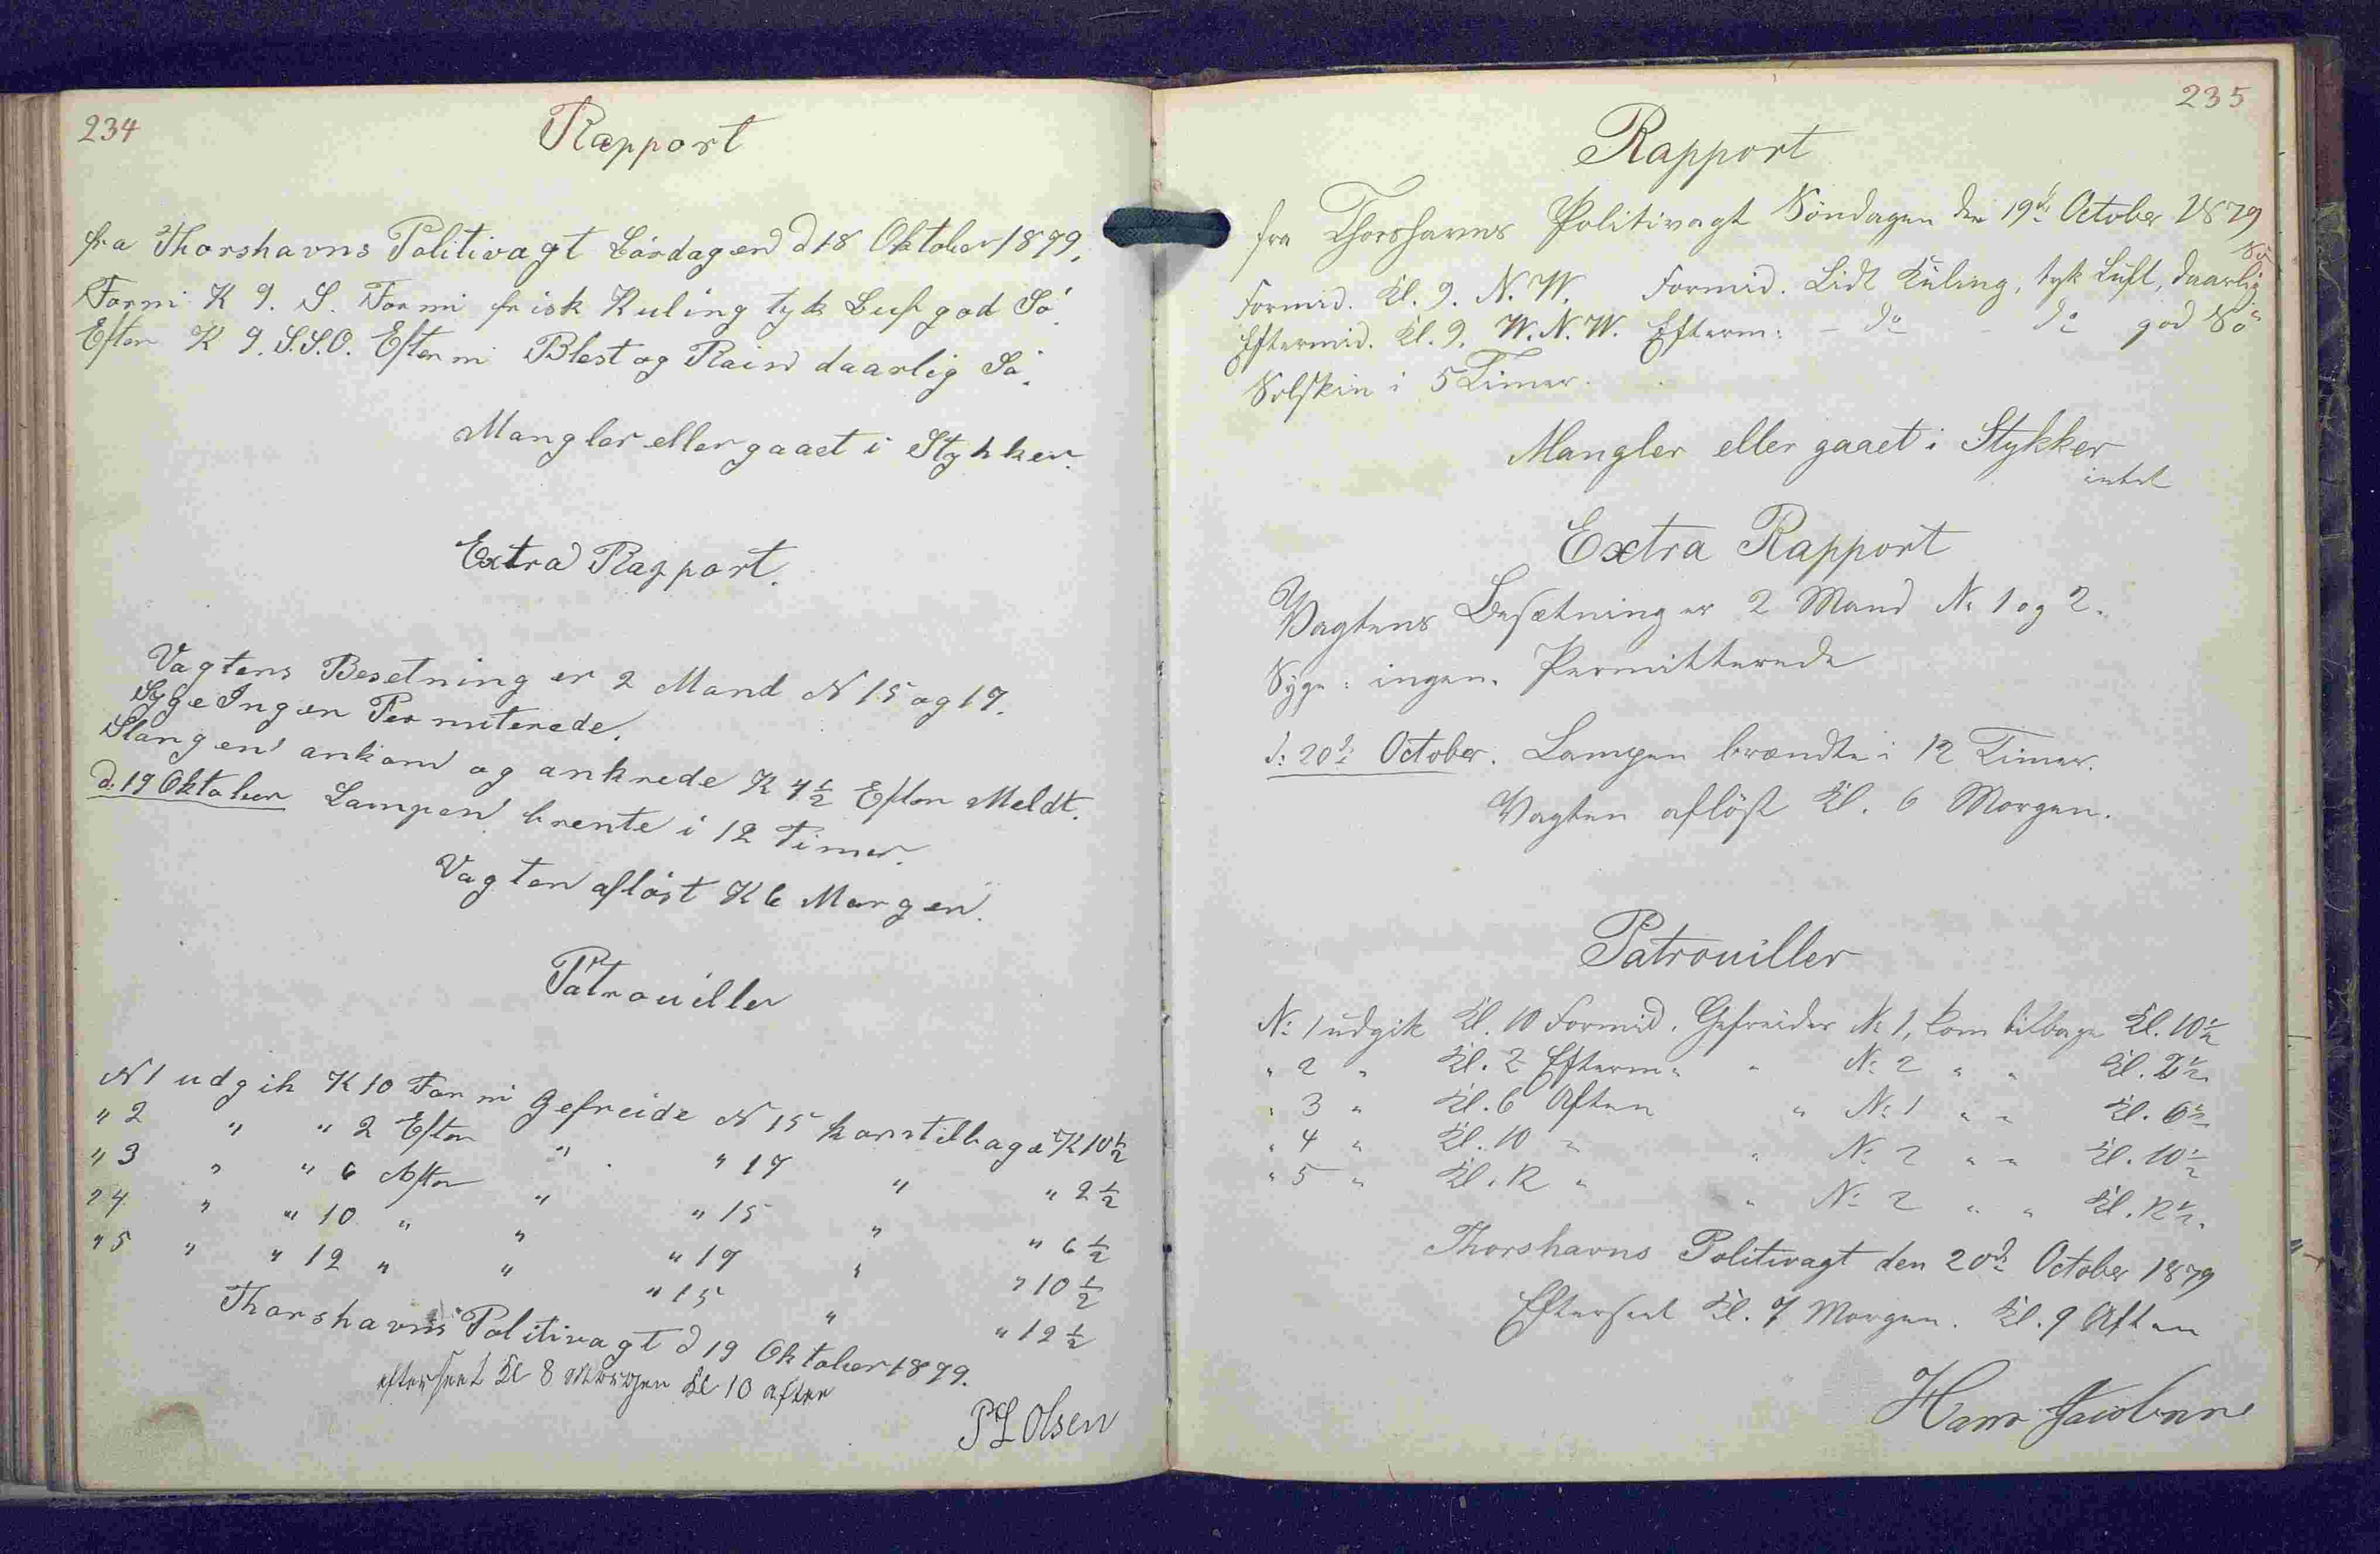 234
Rapport
fra Thorshavns Politivagt Lördagen d 18 Oktober 1879.
Formi K 9. S. Formi frisk Kuling tyk Luft god Sö.
Efter K 9. S.S.O. Eftermi Blest og Rain daarlig Sö.
Mangler eller gaaet i Stykker.
Extra Rapport.
Vagtens Besetning er 2 Mand N 15 og 17.
Syge Ingen Permiterede.
Slangen ankom og ankrede K 4 1/2 Efter Meldt.
d. 19 Oktober Lampen brente i 12 Timer.
Vagten aflöst K 6 Morgen.
Patrouiller
N 1 udgik K 10 Formi Gefreide N 15 kom tilbage K 10 1/2
" 2 " " 2 Efter " " 17 " " 2 1/2
" 3 " " 6 Aften " " 15 " " 6 1/2
" 4 " " 10 " " " 17 " " 10 1/2
" 5 " " 12 " " " 15 " " 12 1/2
Thorshavns Politivagt d 19 Oktober 1879.
efterseet Kl 8 Morgen Kl 10 aften
P L Olsen
235
Rapport
fra Thorshavns Politivagt Söndagen den 19de October 1879
Formid. Kl. 9. N. W. Formid. Lidt Kuling, tyk Luft, daarlig Sö
Eftermid. Kl. 9. W. N. W. Efterm: - do - do god Sö
Solskin i 5 Timer.
Mangler eller gaaet i Stykker
intet
Extra Rapport
Vagtens Besætning er 2 Mand No 1 og 2.
Syge: ingen. Permitterede
d: 20de October. Lampen brændte i 12 Timer.
Vagten aflöst Kl. 6 Morgen.
Patrouiller
No: 1 udgik Kl. 10 Formid. Gefreider No 1, kom tilbage Kl. 10 1/2
" 2 " Kl. 2 Efterm: " No 2 " " Kl. 2 1/2
" 3 " Kl. 6 Aften " No 1 " " Kl. 6 1/2
" 4 " Kl. 10 " " No 2 " " Kl. 10 1/2
" 5 " Kl. 12 " " No 2 " " Kl. 12 1/2.
Thorshavns Politivagt den 20de October 1879
Efterseet Kl. 7 Morgen. Kl. 9 Aften
Hans Jacobsen